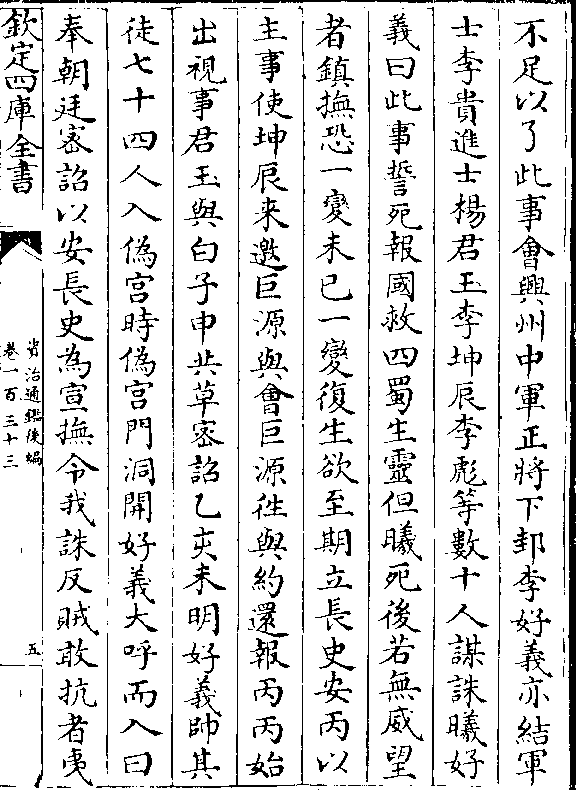 不足以了此事會興州中軍正將下邽李好義亦結軍
士李貴進士楊君玉李坤辰李彪等數十人謀誅曦好
義曰此事誓死報國救四蜀生靈但曦死後若無威望
者鎮撫恐一變未已一變復生欲至期立長史安丙以
主事使坤辰来邀巨源與會巨源徃與約還報丙丙始
出視事君玉與白子申共草密詔乙亥未明好義帥其
徒七十四人入偽宫時偽宫門洞開好義大呼而入曰
奉朝廷密詔以安長史為宣撫令我誅反賊敢抗者夷
欽定四庫全書
資治通鑑後編
卷一百三十三
五